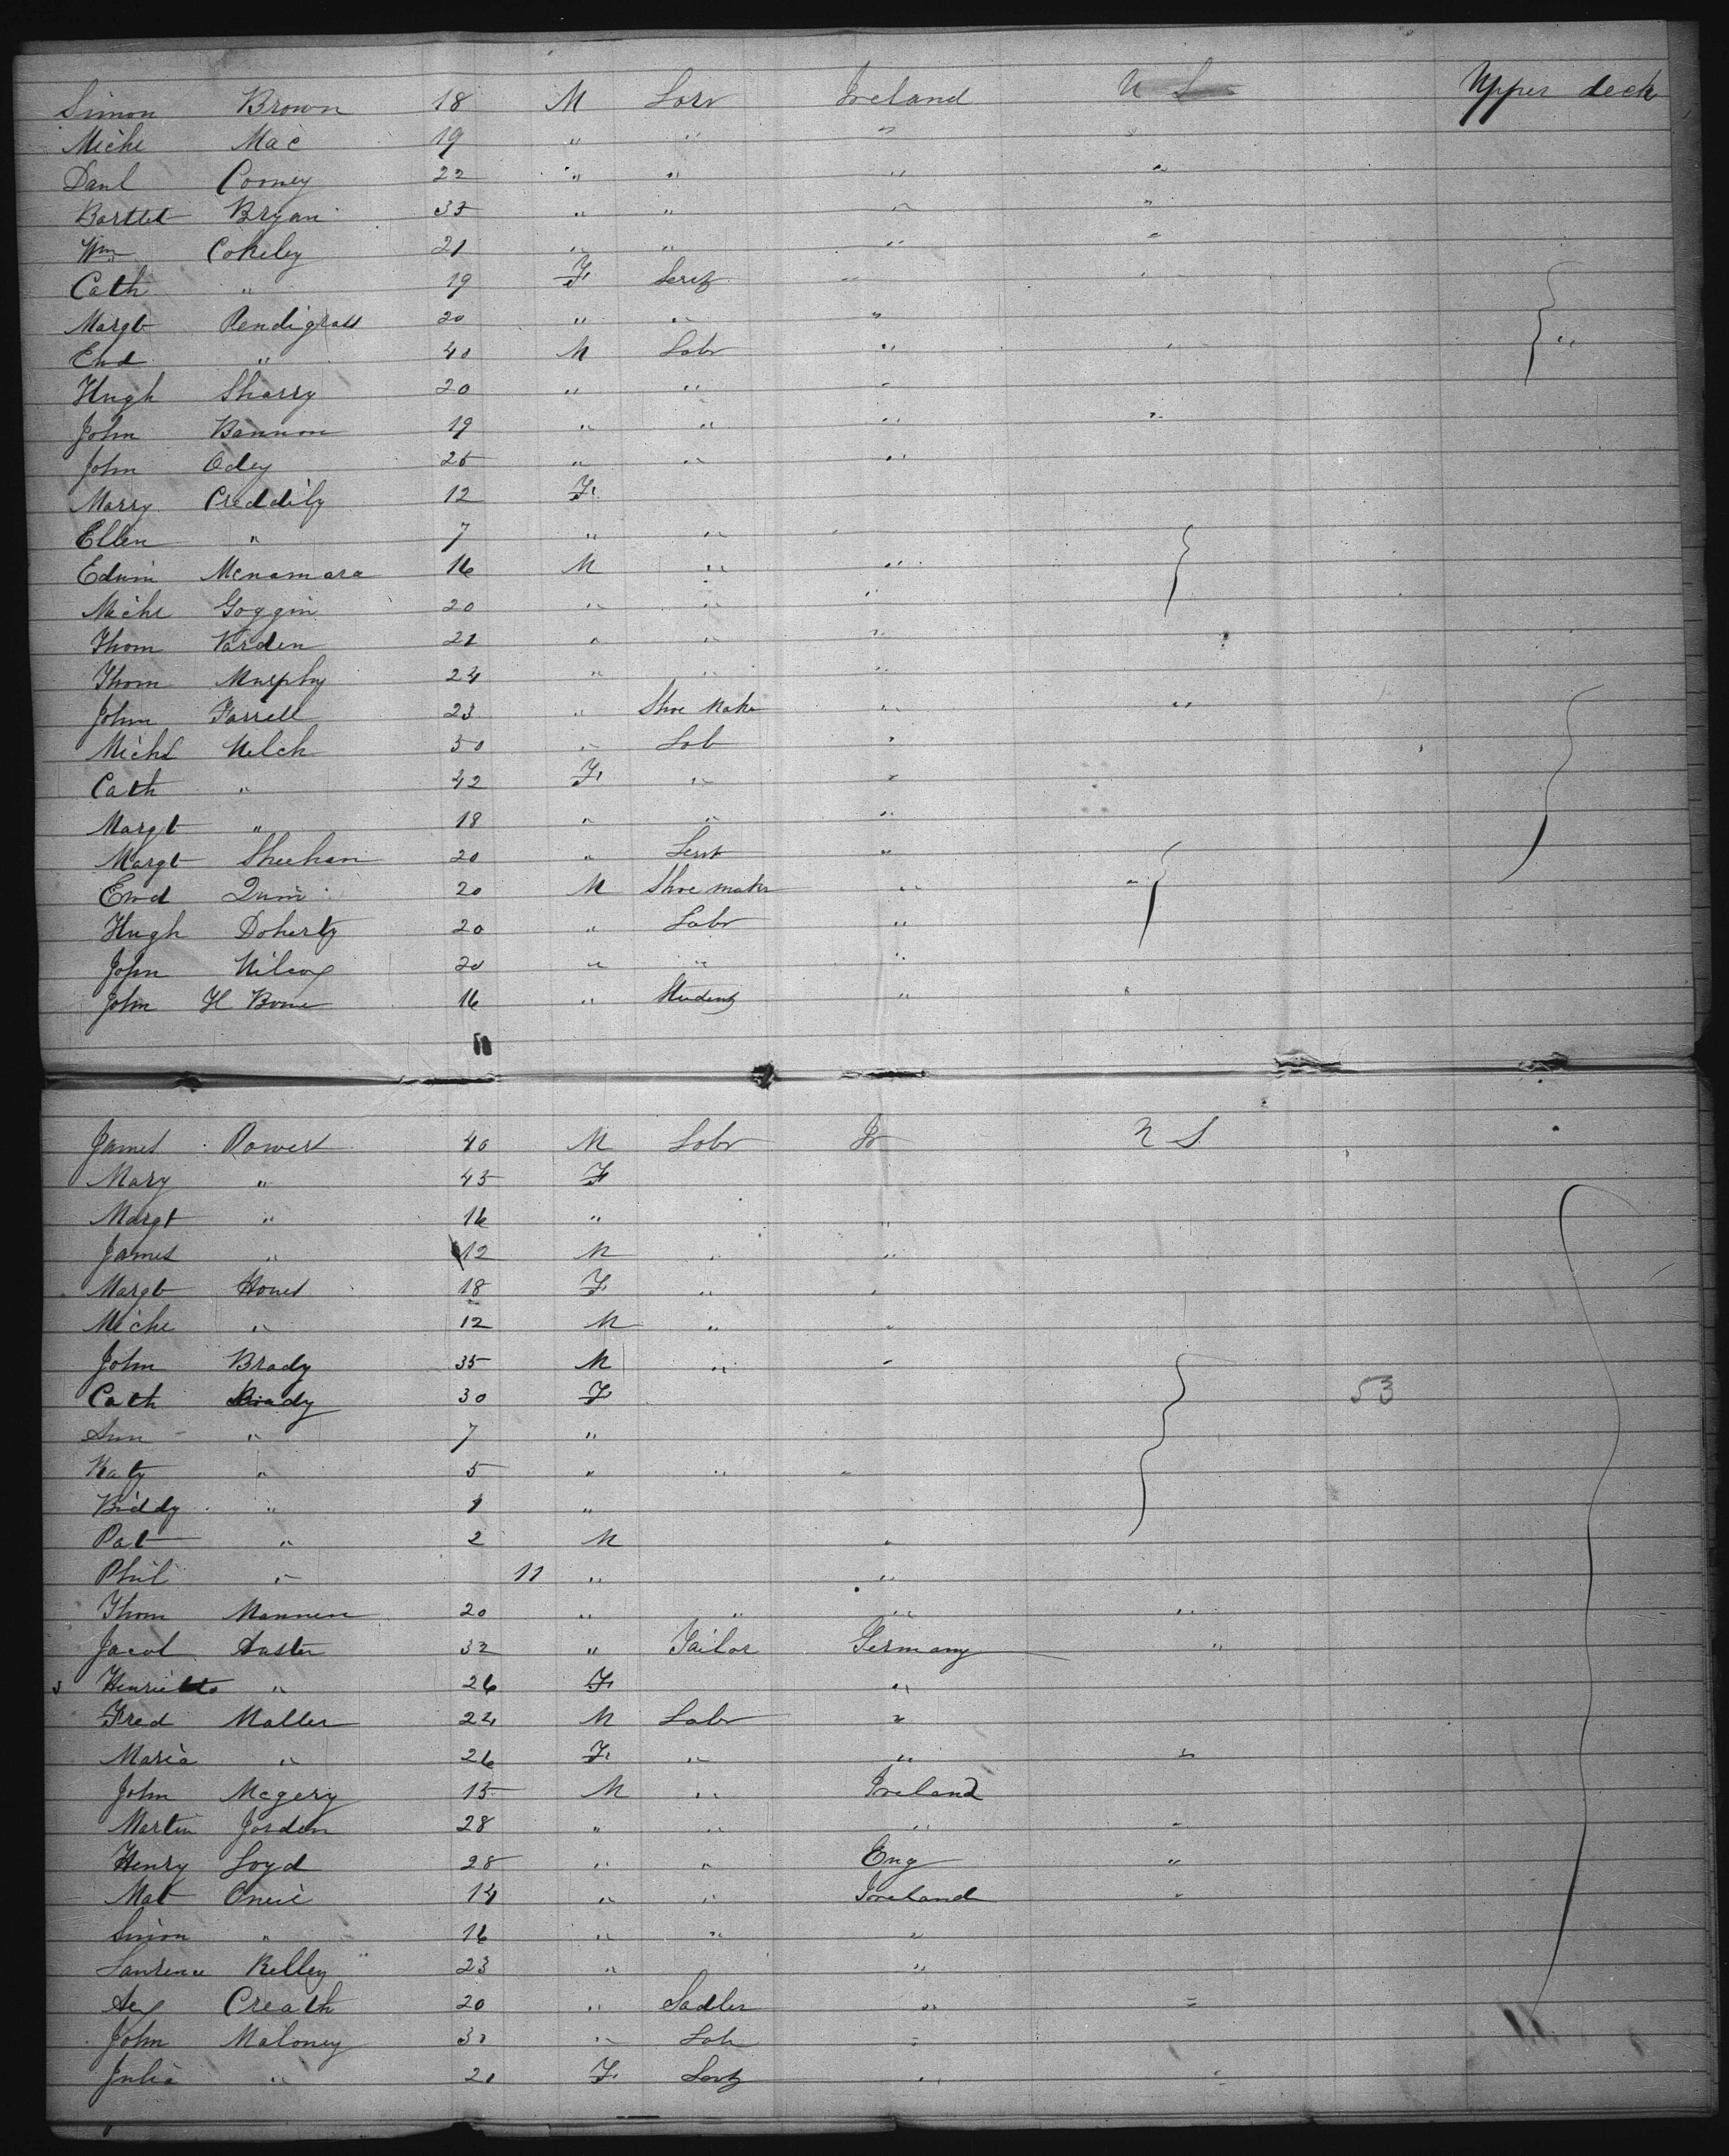 Simon Brown 18 M Labr Ireland U S Upper deck
Michl Mac 19 " " " "
Danl Cooney 22 " " " "
Bartlet Bryan 35 " " " "
Wm Cokeley 21 " " " "
Cath " 19 F Servt " "
Margt Pendigrass 20 " " "
Ewd " 40 M Labr " " "
Hugh Sharry 20 " " "
John Bannon 19 " " " "
John Odey 25 " " "
Marry Creddily 12 F
Ellen " 7 " " "
Edwin Mcnamara 16 M " "
Michl Goggin 20 " " "
Thom Varden 21 " " "
Thom Murphy 24 " " "
John Farrell 23 " Shoe Maker " "
Michl Welch 50 " Lab "
Cath " 42 F " "
Margt " 18 " " "
Margt Sheehan 20 " Servt "
Ewd Quin 20 M Shoe maker " "
Hugh Doherty 20 " Labr "
John Wilcox 20 " " "
John H Bowe 16 " Student " "
James Powers 40 M Labr Ir U S
Mary " 45 F
Margt " 16 " "
James " 12 M " "
Margt Hones 18 F " "
Michl " 12 M " "
John Brady 35 M " "
Cath Brady 30 F 53
Ann " 7 "
Katy " 5 " " "
Biddy " 1 "
Pat " 2 M "
Phil " 11 " "
Thom Mannen 20 " " " "
Jacob Auster 32 " Tailor Germany "
Henrietta " 26 F "
Fred Maller 24 M Labr "
Maria " 26 F " " "
John Mcgery 15 M " Ireland
Martin Jorden 28 " " " "
Henry Loyd 28 " " Eng "
Mat Oneil 14 " " Ireland "
Simon " 16 " " "
Laurence Kelley 23 " "
Alex Creath 20 " Sadler " "
John Maloney 30 " Lab "
Julia " 21 F Servt " "